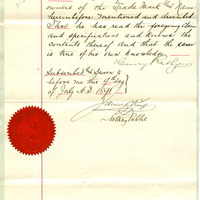 owners of the Trade Mark
hereinbefore mentioned and described
That he has read the foregoing
and specifications and knows the
contents thereof and that the same
is true of his own knowledge
Subscribed & Sworn to
before me this 9th day
of July A.D.
Notary Public